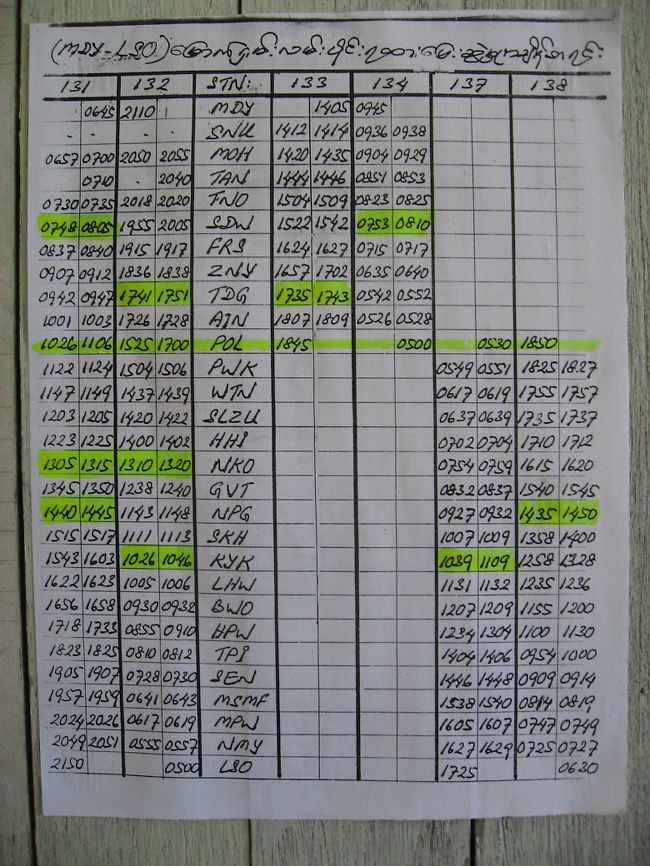 (MDY-LSO)
131 132 STN: 133 134 137 138
0645 2110 MDY 1405 0945
- - - - SNU 1412 1414 0936 0938
0657 0700 2050 2055 MOH 1420 1435 0904 0929
0710 - 2040 TAN 1444 1446 0851 0853
0730 0735 2018 2020 FNO 1504 1509 0823 0825
0748 0805 1955 2005 SDW 1522 1542 0753 0810
0837 0840 1915 1917 FRS 1624 1627 0715 0717
0907 0912 1836 1838 ZNY 1657 1702 0635 0640
0942 0947 1741 1751 TDG 1735 1743 0542 0552
1001 1003 1726 1728 AJN 1807 1809 0526 0528
1026 1106 1525 1700 POL 1845 0500 0530 1850
1122 1124 1504 1506 PWK 0549 0551 1825 1827
1147 1149 1437 1439 WTN 0617 0619 1755 1757
1203 1205 1420 1422 SLZU 0637 0639 1735 1737
1223 1225 1400 1402 HHI 0702 0704 1710 1712
1305 1315 1310 1320 NKO 0754 0759 1615 1620
1345 1350 1238 1240 GVT 0832 0837 1540 1545
1440 1445 1143 1148 NPG 0927 0932 1435 1450
1515 1517 1111 1113 SKH 1007 1009 1358 1400
1543 1603 1026 1046 KYK 1039 1109 1258 1328
1622 1623 1005 1006 LHW 1131 1132 1235 1236
1656 1658 0930 0932 BWO 1207 1209 1155 1200
1718 1733 0855 0910 HPW 1234 1304 1100 1130
1823 1825 0810 0812 TPI 1404 1406 0954 1000
1905 1907 0728 0730 SEN 1446 1448 0909 0914
1957 1959 0641 0643 MSMF 1538 1540 0814 0819
2024 2026 0617 0619 MPW 1605 1607 0747 0749
2049 2051 0555 0557 NMY 1627 1629 0725 0727
2150 0500 LSO 1725 0630